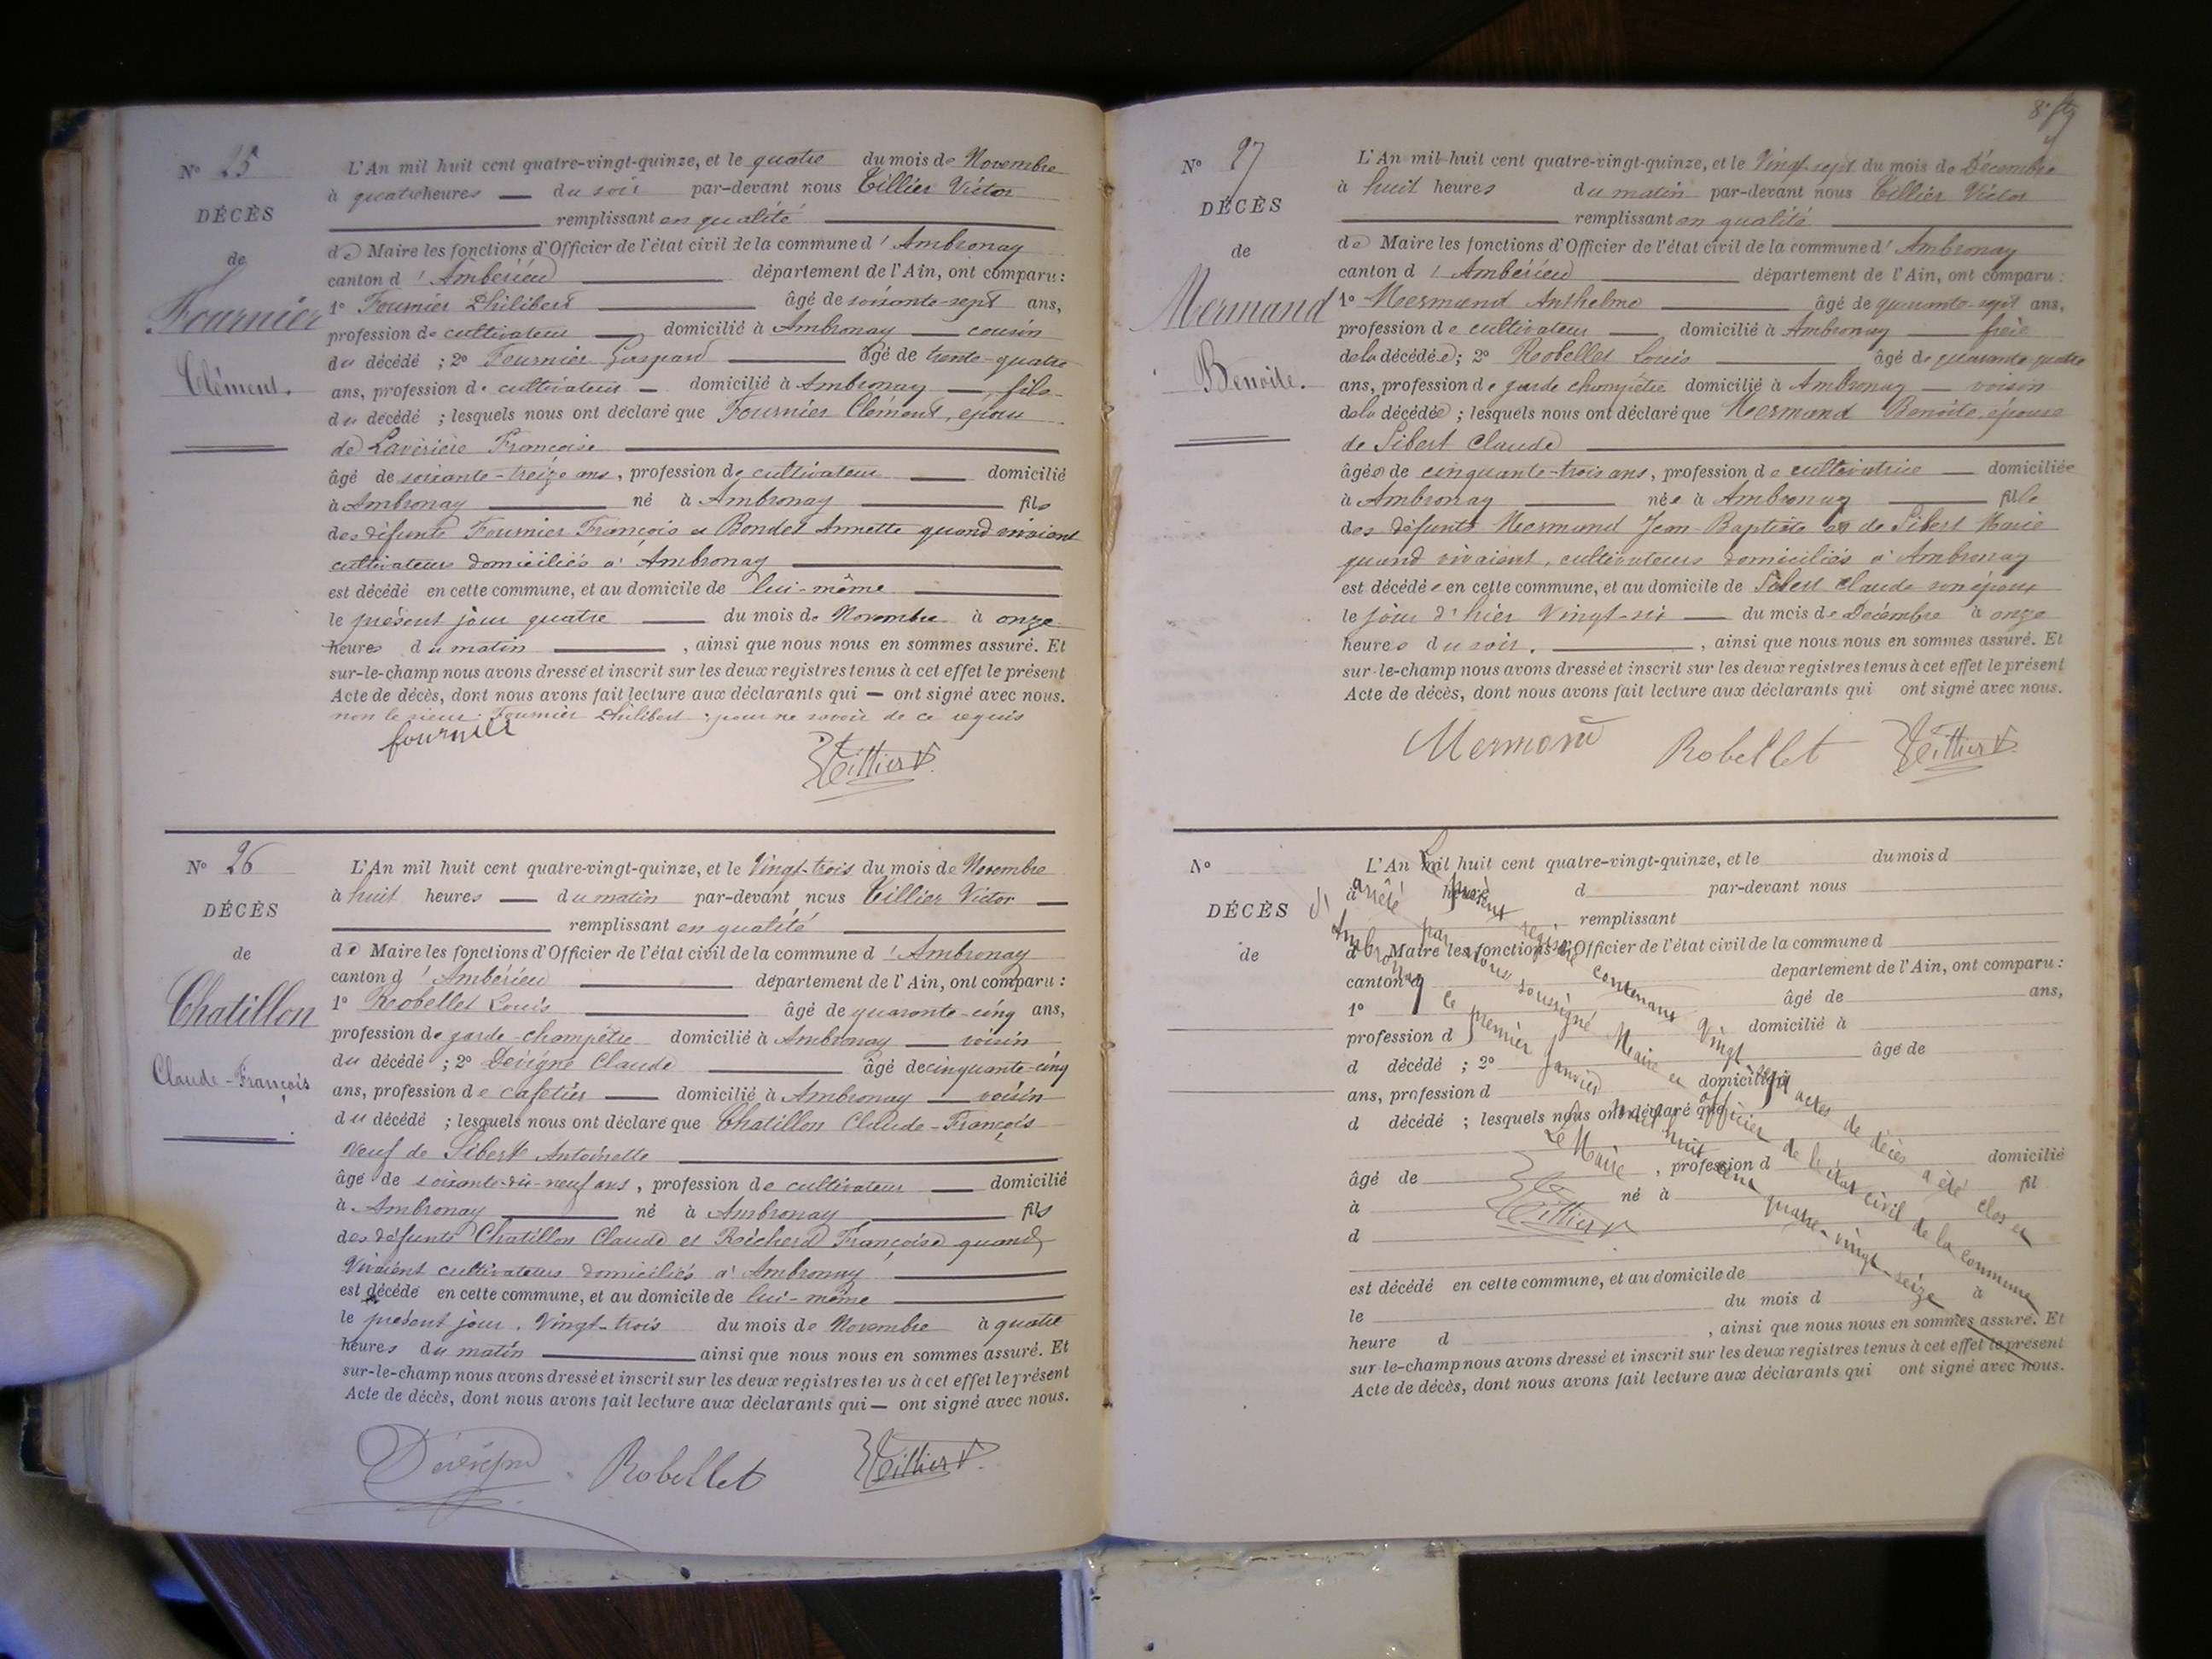 N° 25
DÉCÈS
de
Fournier
Clément.
L'An mil huit cent quatre-vingt-quinze, et le quatre du mois de Novembre
à quatre heures — du soir par-devant nous Tillier Victor
remplissant en qualité
de Maire les fonctions d'Officier de l'état civil de la commune d'Ambronay
canton d'Ambérieu département de l'Ain, ont comparu :
1° Fournier Philibert âgé de soixante-sept ans,
profession de cultivateur — domicilié à Ambronay — cousin
du décédé ; 2° Fournier Gaspard âgé de trente-quatre
ans, profession de cultivateur — domicilié à Ambronay — fils
du décédé ; lesquels nous ont déclaré que Fournier Clément, époux
de Laverière Françoise
âgé de soixante-treize ans, profession de cultivateur — domicilié
à Ambronay né à Ambronay fils
des défunts Fournier François et Bondet Annette quand vivaient
cultivateurs domiciliés à Ambronay
est décédé en cette commune, et au domicile de lui-même
le présent jour quatre du mois de Novembre à onze
heures du matin , ainsi que nous nous en sommes assuré. Et
sur-le-champ nous avons dressé et inscrit sur les deux registres tenus à cet effet le présent
Acte de décès, dont nous avons fait lecture aux déclarants qui — ont signé avec nous.
non le sieur Fournier Philibert pour ne savoir de ce requis
fournier
Tillier V.
N° 26
DÉCÈS
de
Chatillon
Claude-François
L'An mil huit cent quatre-vingt-quinze, et le Vingt-trois du mois de Novembre
à huit heures — du matin par-devant nous Tillier Victor —
remplissant en qualité
de Maire les fonctions d'Officier de l'état civil de la commune d'Ambronay
canton d'Ambérieu département de l'Ain, ont comparu :
1° Robellet Louis âgé de quaronte-cinq ans,
profession de garde-champêtre domicilié à Ambronay — voisin
du décédé ; 2° Devigne Claude âgé de cinquante-cinq
ans, profession de cafetier — domicilié à Ambronay — voisin
du décédé ; lesquels nous ont déclaré que Chatillon Claude-François
Veuf de Sibert Antoinette
âgé de soixante-dix-neuf ans, profession de cultivateur — domicilié
à Ambronay né à Ambronay fils
des défunts Chatillon Claude et Richerd Françoise quand
Vivaient cultivateurs domiciliés à Ambronay
est décédé en cette commune, et au domicile de lui-même
le présent jour, Vingt-trois du mois de Novembre à quatre
heures du matin ainsi que nous nous en sommes assuré. Et
sur-le-champ nous avons dressé et inscrit sur les deux registres tenus à cet effet le présent
Acte de décès, dont nous avons fait lecture aux déclarants qui — ont signé avec nous.
Robellet
Tillier V.
N° 27
DÉCÈS
de
Mermand
Benoite.
L'An mil huit cent quatre-vingt-quinze, et le Vingt-sept du mois de Décembre
à huit heures du matin par-devant nous Tillier Victor
remplissant en qualité
de Maire les fonctions d'Officier de l'état civil de la commune d'Ambronay
canton d'Ambérieu département de l'Ain, ont comparu :
1° Mermand Anthelme âgé de quarante-sept ans,
profession de cultivateur — domicilié à Ambronay — frère
de la décédée ; 2° Robellet Louis âgé de quarante quatre
ans, profession de garde champêtre domicilié à Ambronay — voisin
de la décédée ; lesquels nous ont déclaré que Mermand Benoite épouse
de Sibert Claude
âgée de cinquante-trois ans, profession de cultivatrice — domiciliée
à Ambronay née à Ambronay fille
des défunts Mermand Jean-Baptiste et de Sibert Marie
quand vivaient, cultivateurs domiciliés à Ambronay
est décédée en cette commune, et au domicile de Sibert Claude son époux
le jour d'hier Vingt-six — du mois de Décembre à onze
heures du soir. , ainsi que nous nous en sommes assuré. Et
sur-le-champ nous avons dressé et inscrit sur les deux registres tenus à cet effet le présent
Acte de décès, dont nous avons fait lecture aux déclarants qui ont signé avec nous.
Mermand Robellet Tillier V.
N°
DÉCÈS
de
L'An mil huit cent quatre-vingt-quinze, et le du mois d
à heures d par-devant nous
remplissant
d Maire les fonctions d'Officier de l'état civil de la commune d
canton d département de l'Ain, ont comparu :
1° âgé de ans,
profession d domicilié à
d décédé ; 2° âgé de
ans, profession d domicilié à
d décédé ; lesquels nous ont déclaré que
âgé de , profession d domicilié
à né à fil
d
est décédé en cette commune, et au domicile de
le du mois d à
heure d , ainsi que nous nous en sommes assuré. Et
sur-le-champ nous avons dressé et inscrit sur les deux registres tenus à cet effet le présent
Acte de décès, dont nous avons fait lecture aux déclarants qui ont signé avec nous.
Le présent registre contenant Vingt sept actes de décès a été clos et
arrêté par nous soussigné Maire et officier de l'état civil de la commune
d'Ambronay le premier Janvier mil huit cent quatre-vingt-seize
Le Maire
Tillier V